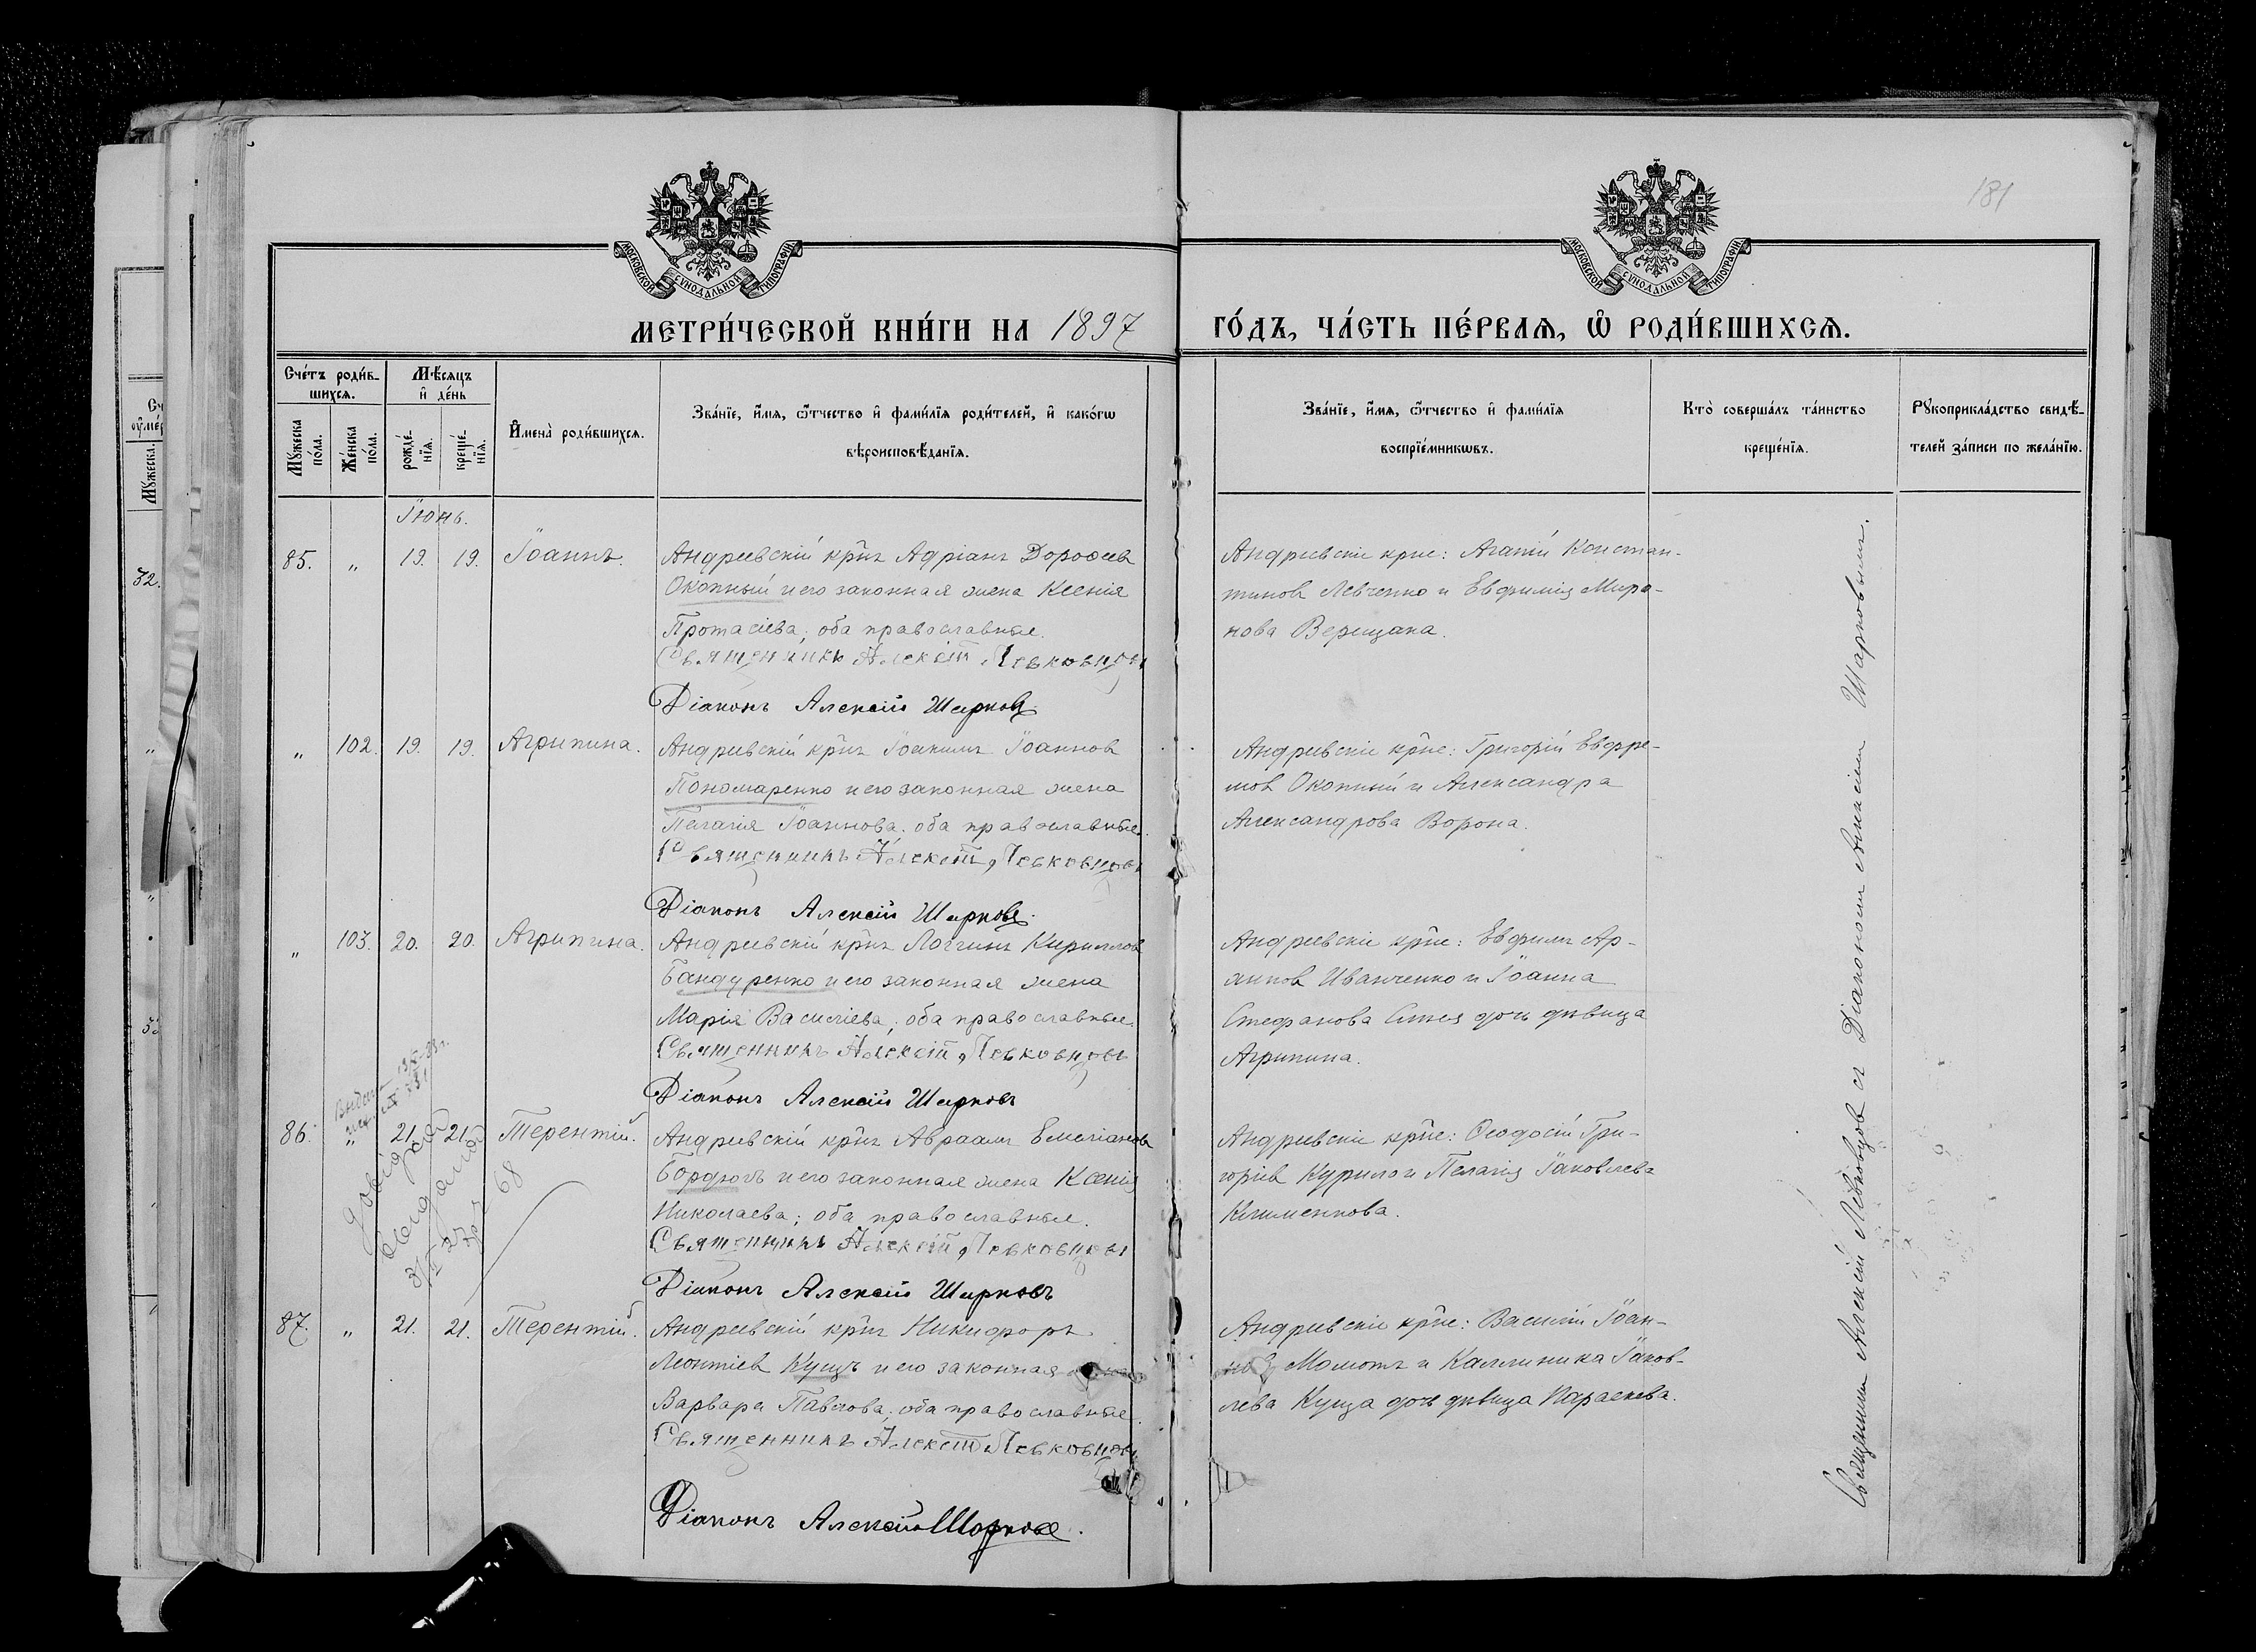 181
МОСКОВСКОЙ СУНОДАЛЬНОЙ ТИПОГРАФІИ
МОСКОВСКОЙ СУНОДАЛЬНОЙ ТИПОГРАФІИ
МЕТРИ́ЧЕСКОЙ КНИ́ГИ НА 1897
ГО́ДЪ, ЧА́СТЬ ПЕ́РВАЯ, Ѡ҆ РОДИ́ВШИХСЯ.
Сче́тъ роди́в-
шихся.
Мѣ́сяцъ
и҆ де́нь
Му́жеска
по́ла.
Же́нска
по́ла.
рожде́-
нїя.
креще́-
нїя.
И҆мена̀ роди́вшихся.
Зва́нїе, и҆́мя, ѻ҆́тчество и҆ фами́лїя роди́телей, и҆ како́гѡ
вѣроисповѣ́данїя.
Зва́нїе, и҆́мя, ѻ҆́тчество и҆ фами́лїя
воспрїе́мникѡвъ.
Кто̀ соверша́лъ та́инство
креще́нїя.
Рукоприкла́дство свидѣ́-
телей за́писи по жела́нїю.
Іюнь.
85. " 19. 19. Іоаннъ.
Андреевскій кр̃нъ Адріанъ Дороѳеев
Окопный и его законная жена Ксенія
Протасіева; оба православные.
Священникъ Алексій Левковцовъ
Діаконъ Алексій Шарковъ.
Андреевскіе крне: Агапій Констан-
тинов Левченко и Евфимія Миро-
нова Верещака.
" 102. 19. 19. Агрипина.
Андреевскій кр̃нъ Іоакимъ Іоаннов
Пономаренко и его законная жена
Пелагія Іоаннова; оба православные.
Священникъ Алексій Левковцовъ
Діаконъ Алексій Шарковъ.
Андреевскіе кр̃не: Григорій Евфре-
мов Окопный и Александра
Александрова Ворона.
" 103. 20. 20. Агрипина.
Андреевскій кр̃нъ Логгинъ Кириллов
Бандуренко и его законная жена
Марія Василіева; оба православные.
Священникъ Алексій Левковцовъ
Діаконъ Алексій Шарковъ
Андреевскіе кр̃не: Евфимъ Ар-
Иванченко и Іоанна
Стефанова дочь дѣвица
Агрипина.
86. " 21. 21. Терентій.
Андреевскій кр̃нъ Авраамъ Емеліанов
Бордюгъ и его законная жена Ксенія
Николаева; оба православные.
Священникъ Алексій Левковцовъ
Діаконъ Алексій Шарковъ
Андреевскіе кр̃не: Ѳеодосій Гри-
горіев Курило и Пелагія Іаковлева
Клименкова.
87. " 21. 21. Терентій.
Андреевскій кр̃нъ Никифоръ
Леонтіев Кущъ и его законная
Варвара Павлова; оба православные.
Священникъ Алексій Левковцовъ
Діаконъ Алексій Шарковъ.
Андреевскіе кр̃не: Василій Іоан-
нов Момотъ и Каллиника Іаков-
лева Куща дочь дѣвица Параскева.
Священник Алексій Левковцов съ Діаконом Алексіем Шарковым.